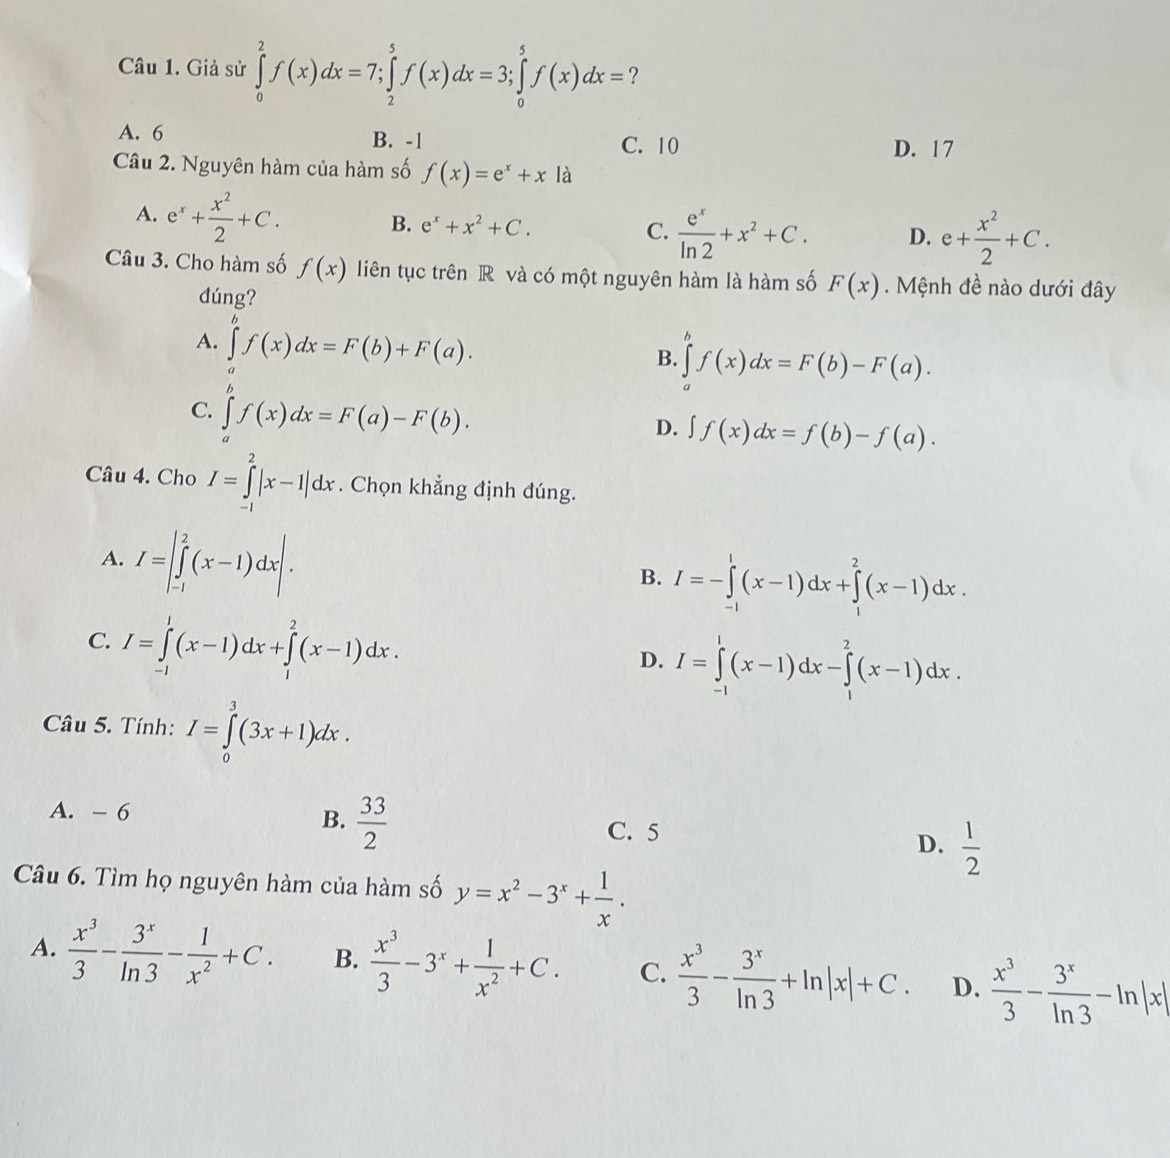 Câu 1. Giả sử ∫₀² f(x)dx = 7; ∫₂⁵ f(x)dx = 3; ∫₀⁵ f(x)dx = ?
A. 6 B. -1 C. 10 D. 17
Câu 2. Nguyên hàm của hàm số f(x) = eˣ + x là
A. eˣ + x²/2 + C. B. eˣ + x² + C. C. eˣ/ln 2 + x² + C. D. e + x²/2 + C.
Câu 3. Cho hàm số f(x) liên tục trên ℝ và có một nguyên hàm là hàm số F(x). Mệnh đề nào dưới đây
đúng?
A. ∫ₐᵇ f(x)dx = F(b) + F(a). B. ∫ₐᵇ f(x)dx = F(b) − F(a).
C. ∫ₐᵇ f(x)dx = F(a) − F(b). D. ∫ f(x)dx = f(b) − f(a).
Câu 4. Cho I = ∫₋₁² |x − 1|dx. Chọn khẳng định đúng.
A. I = |∫₋₁² (x − 1)dx|. B. I = −∫₋₁¹ (x − 1)dx + ∫₁² (x − 1)dx.
C. I = ∫₋₁¹ (x − 1)dx + ∫₁² (x − 1)dx. D. I = ∫₋₁¹ (x − 1)dx − ∫₁² (x − 1)dx.
Câu 5. Tính: I = ∫₀³ (3x + 1)dx.
A. − 6 B. 33/2 C. 5 D. 1/2
Câu 6. Tìm họ nguyên hàm của hàm số y = x² − 3ˣ + 1/x.
A. x³/3 − 3ˣ/ln 3 − 1/x² + C. B. x³/3 − 3ˣ + 1/x² + C. C. x³/3 − 3ˣ/ln 3 + ln|x| + C. D. x³/3 − 3ˣ/ln 3 − ln|x|